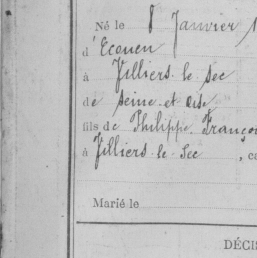 Né le 8 Janvier 1
d'Ecouen
à Villiers le Sec
de Seine et Oise
fils de Philippe Franço
à Villiers le Sec , ca
Marié le
DÉCIS